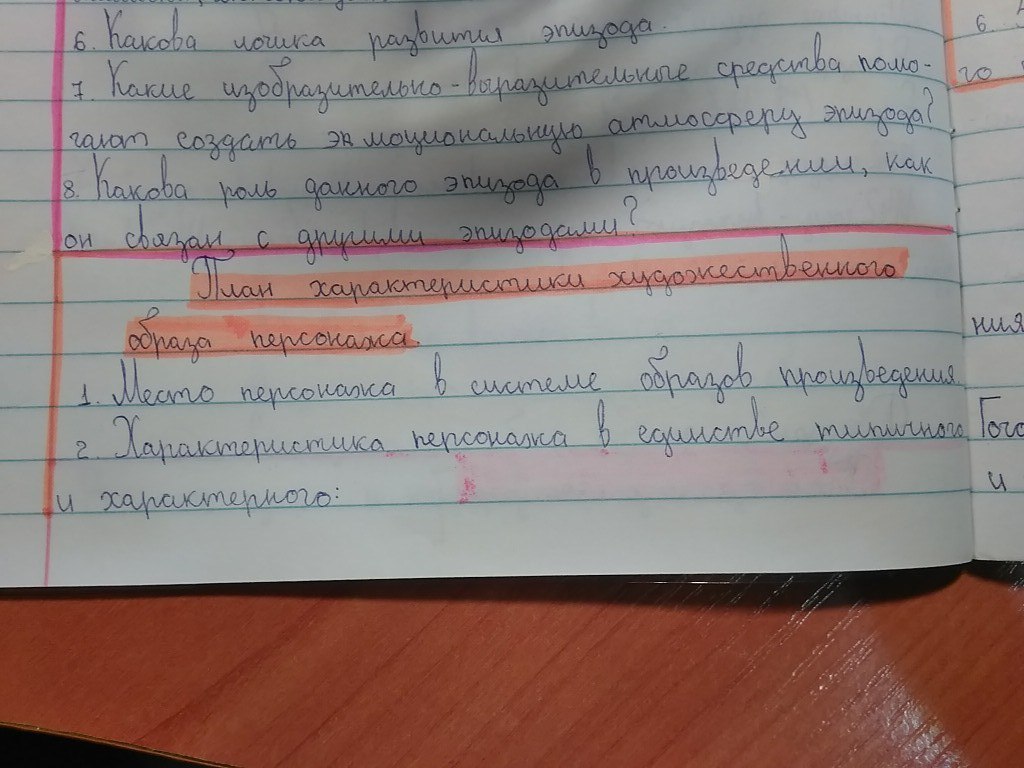 6. Какова логика развития эпизода.
7. Какие изобразительно-выразительные средства помо-
гают создать эмоциональную атмосферу эпизода?
8. Какова роль данного эпизода в произведении, как
он связан с другими эпизодами?
План характеристики художественного
образа персонажа.
1. Место персонажа в системе образов произведения
2. Характеристика персонажа в единстве типичного
и характерного:
6.
го
ния
Гого
и